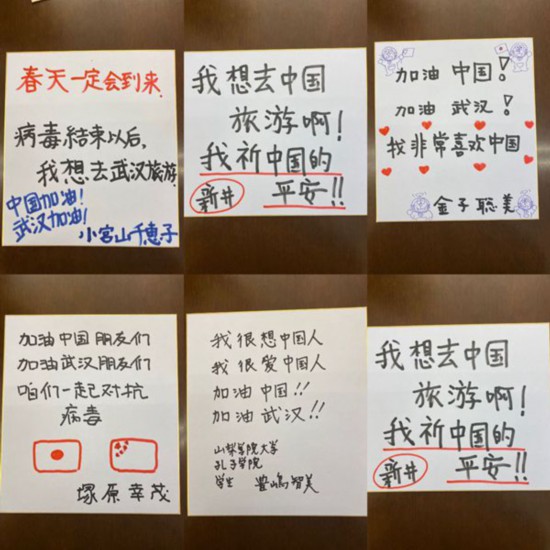 春天一定会到来
病毒結束以后,
我想去武汉旅游.
中国加油!
武汉加油!
小宮山千惠子
我想去中国
旅游啊!
我祈中国的
新井 平安!!
加油 中国!
加油 武汉!
我非常喜欢中国
金子聡美
加油中国朋友们
加油武汉朋友们
咱们一起対抗
病毒
塚原幸茂
我很想中国人
我很爱中国人
加油 中国!!
加油 武汉!!
山梨学院大学
孔子学院
学生 豊嶋智美
我想去中国
旅游啊!
我祈中国的
新井 平安!!